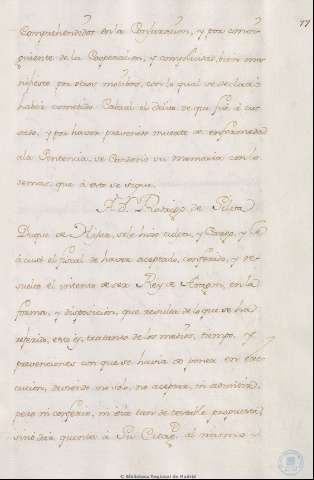 77
Comprehendidos en la Conjuracion, y por consi-
guiente de la Cooperacion, y complicidad, bien ma-
nifiesto por otros motibos, con lo qual se declaró
haber cometido Cabral el delito de que fué acu-
sado, y por haver prevenido muerte de enfermedad
a la Sentencia, se Condenó su memoria con lo
demas, que á esto se sigue.
A Dn. Rodrigo de Silva
Duque de Hijar, se le hizo culpa, y Cargo, y le
acusó el fiscal de haver aceptado, conferido, y re-
suelto el intento de ser Rey de Aragon, en la
forma, y disposicion, que resulta de lo que se ha
referido, esto es, tratando de los medios, tiempo, y
prevenciones con que se havia de poner en exe-
cucion, deviendo no solo, no aceptar, ni admitir,
pero ni conferir, ni oir tan detestable propuesta,
sino dar quenta á Su Magd. al mismo
© Biblioteca Regional de Madrid